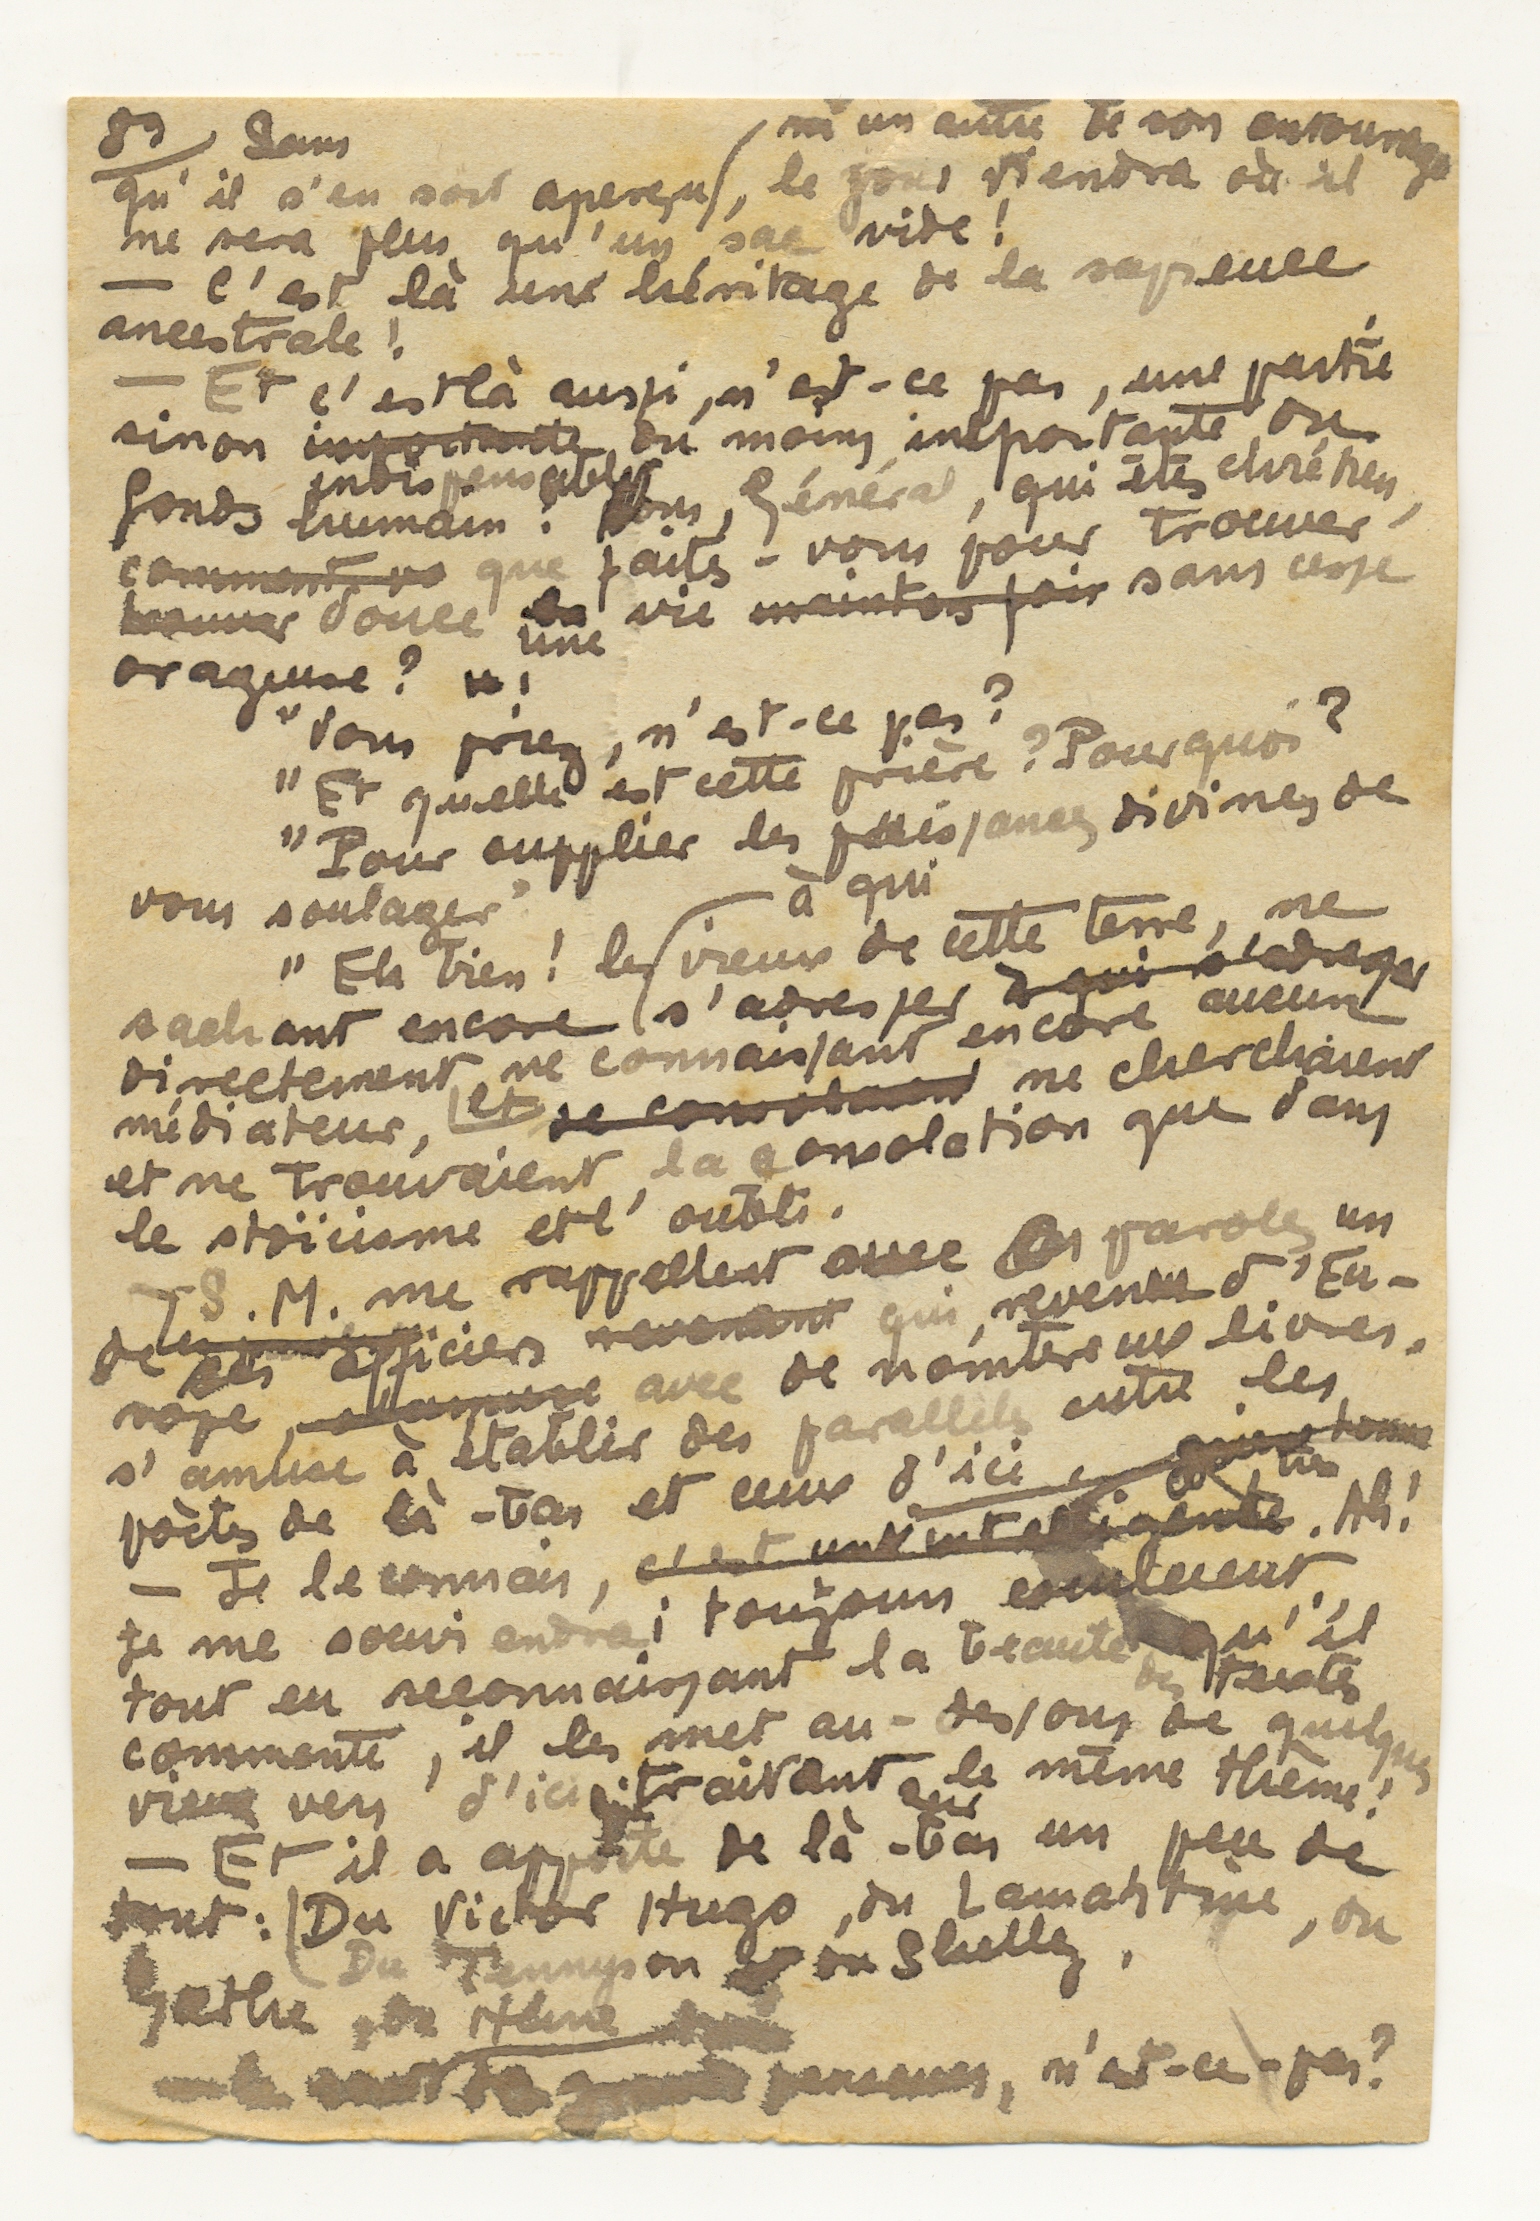 89 Sans
ni un autre de son entourage
qu'il s'en soit aperçu, le jour viendra où il
ne sera plus qu'un sac vide !
— C'est là une héritage de la sapience
ancestrale !
— Et c'est là aussi, n'est-ce pas, une partie
sinon importante du moins importante du
indispensable
fonds humain ! Vous, Général, qui êtes chrétien,
comment vo que faites-vous pour trouver
trouver douce la vie maintes fois sans cesse
une
orageuse ?
"Vous priez, n'est-ce pas ?
"Et quelle est cette prière ? Pourquoi ?
"Pour supplier les puissances divines de
vous soulager"
à qui
"Eh bien ! les vieux de cette terre, ne
sachant encore s'adresser à qui s'adresser
directement, ne connaissant encore aucun
médiateur, et se consolaient ne cherchaient
et ne trouvaient la consolation que dans
le stoïcisme et l'oubli.
— S.M. me rappellent avec ces paroles un
de ses officiers revenant qui, revenu d'Eu-
rope, s'amuse avec de nombreux livres,
s'amuse à établir des parallèles entre les
poètes de là-bas et ceux d'ici
— Je le connais, c'est un intelligent. Ah !
je me souviendrai toujours comment,
tout en reconnaissant la beauté qu'il
des textes
commente, il les met au-dessous de quelques
vieux vers d'ici traitant le même thème !
sur
— Et il a apporté de là-bas un peu de
tout : Du Victor Hugo, du Lamartine, du
Du Tennyson ou du Shelley,
Gœthe, du Heine
penseurs, n'est-ce-pas ?